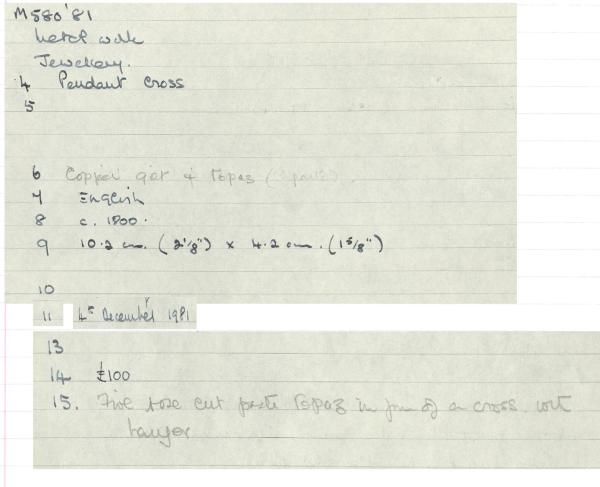 M580'81
Metal work
Jewellery.
4 Pendant cross
5
6 Copper gilt & Topaz (paste)
7 English
8 c. 1800.
9 10.2 cm. (2 1/8") x 4.2 cm. (1 5/8")
10
11 4th December 1981
13
14 £100
15. Five rose cut paste Topaz in form of a cross with
hanger